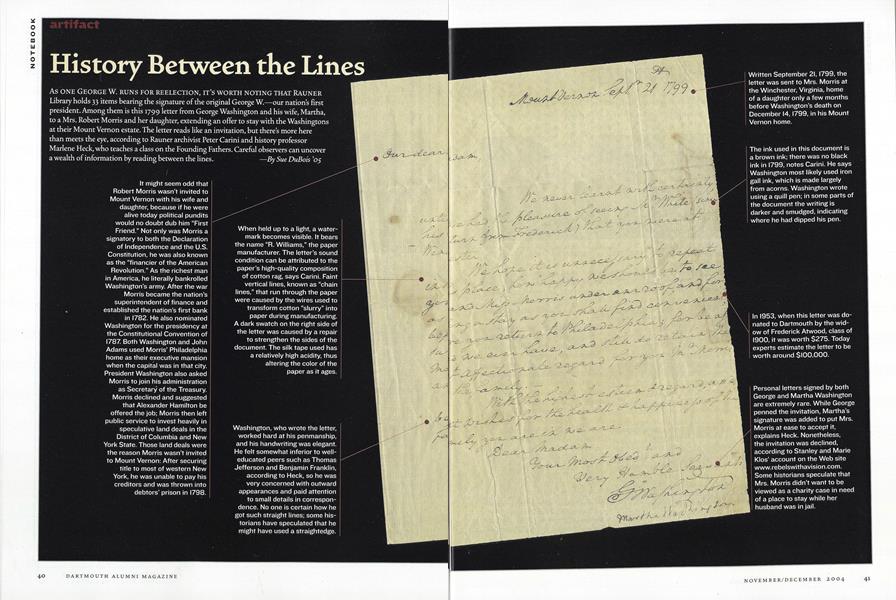 NOTEBOOK
artifact
History Between the Lines
AS ONE GEORGE W. RUNS FOR REELECTION, IT'S WORTH NOTING THAT RAUNER
Library holds 33 items bearing the signature of the original George W.—our nation's first
president. Among them is this 1799 letter from George Washington and his wife, Martha,
to a Mrs. Robert Morris and her daughter, extending an offer to stay with the Washingtons
at their Mount Vernon estate. The letter reads like an invitation, but there's more here
than meets the eye, according to Rauner archivist Peter Carini and history professor
Marlene Heck, who teaches a class on the Founding Fathers. Careful observers can uncover
a wealth of information by reading between the lines. —By Sue DuBois '05
It might seem odd that
Robert Morris wasn't invited to
Mount Vernon with his wife and
daughter, because if he were
alive today political pundits
would no doubt dub him "First
Friend." Not only was Morris a
signatory to both the Declaration
of Independence and the U.S.
Constitution, he was also known
as the "financier of the American
Revolution." As the richest man
in America, he literally bankrolled
Washington's army. After the war
Morris became the nation's
superintendent of finance and
established the nation's first bank
in 1782. He also nominated
Washington for the presidency at
the Constitutional Convention of
1787. Both Washington and John
Adams used Morris' Philadelphia
home as their executive mansion
when the capital was in that city.
President Washington also asked
Morris to join his administration
as Secretary of the Treasury.
Morris declined and suggested
that Alexander Hamilton be
offered the job; Morris then left
public service to invest heavily in
speculative land deals in the
District of Columbia and New
York State. Those land deals were
the reason Morris wasn't invited
to Mount Vernon: After securing
title to most of western New
York, he was unable to pay his
creditors and was thrown into
debtors' prison in 1798.
When held up to a light, a water-
mark becomes visible. It bears
the name "R. Williams," the paper
manufacturer. The letter's sound
condition can be attributed to the
paper's high-quality composition
of cotton rag, says Carini. Faint
vertical lines, known as "chain
lines," that run through the paper
were caused by the wires used to
transform cotton "slurry" into
paper during manufacturing.
A dark swatch on the right side of
the letter was caused by a repair
to strengthen the sides of the
document. The silk tape used has
a relatively high acidity, thus
altering the color of the
paper as it ages.
Washington, who wrote the letter,
worked hard at his penmanship,
and his handwriting was elegant.
He felt somewhat inferior to well-
educated peers such as Thomas
Jefferson and Benjamin Franklin,
according to Heck, so he was
very concerned with outward
appearances and paid attention
to small details in correspon-
dence. No one is certain how he
got such straight lines; some his-
torians have speculated that he
might have used a straightedge.
Mount Vernon Sept 21 1799
Our dear
We never learnt with certainty
the pleasure of seeing Mr White
from Frederick) that you were at
We hope it is unnecessary to repeat
in this place, how happy we should be to see
you and Miss Morris under our roof and for
as long a stay as you shall find convenient
before you return to Philadelphia; for be
we ever have, and still do retain the
most affectionate regard for you Mr Morris
and the family.
With the highest esteem & regard, and
best wishes for the health & happiness of the
family you are in we are
Dear Madam
Your Most Obedt and
Very Humble Servants
G Washington
Martha Washington
Written September 21, 1799, the
letter was sent to Mrs. Morris at
the Winchester, Virginia, home
of a daughter only a few months
before Washington's death on
December 14, 1799, in his Mount
Vernon home.
The ink used in this document is
a brown ink; there was no black
ink in 1799, notes Carini. He says
Washington most likely used iron
gall ink, which is made largely
from acorns. Washington wrote
using a quill pen; in some parts of
the document the writing is
darker and smudged, indicating
where he had dipped his pen.
In 1953, when this letter was do-
nated to Dartmouth by the wid-
ow of Frederick Atwood, class of
1900, it was worth $275. Today
experts estimate the letter to be
worth around $100,000.
Personal letters signed by both
George and Martha Washington
are extremely rare. While George
penned the invitation, Martha's
signature was added to put Mrs.
Morris at ease to accept it,
explains Heck. Nonetheless,
the invitation was declined,
according to Stanley and Marie
Klos' account on the Web site
www.rebelswithavision.com.
Some historians speculate that
Mrs. Morris didn't want to be
viewed as a charity case in need
of a place to stay while her
husband was in jail.
40 DARTMOUTH ALUMNI MAGAZINE
NOVEMBER/DECEMBER 2004 41